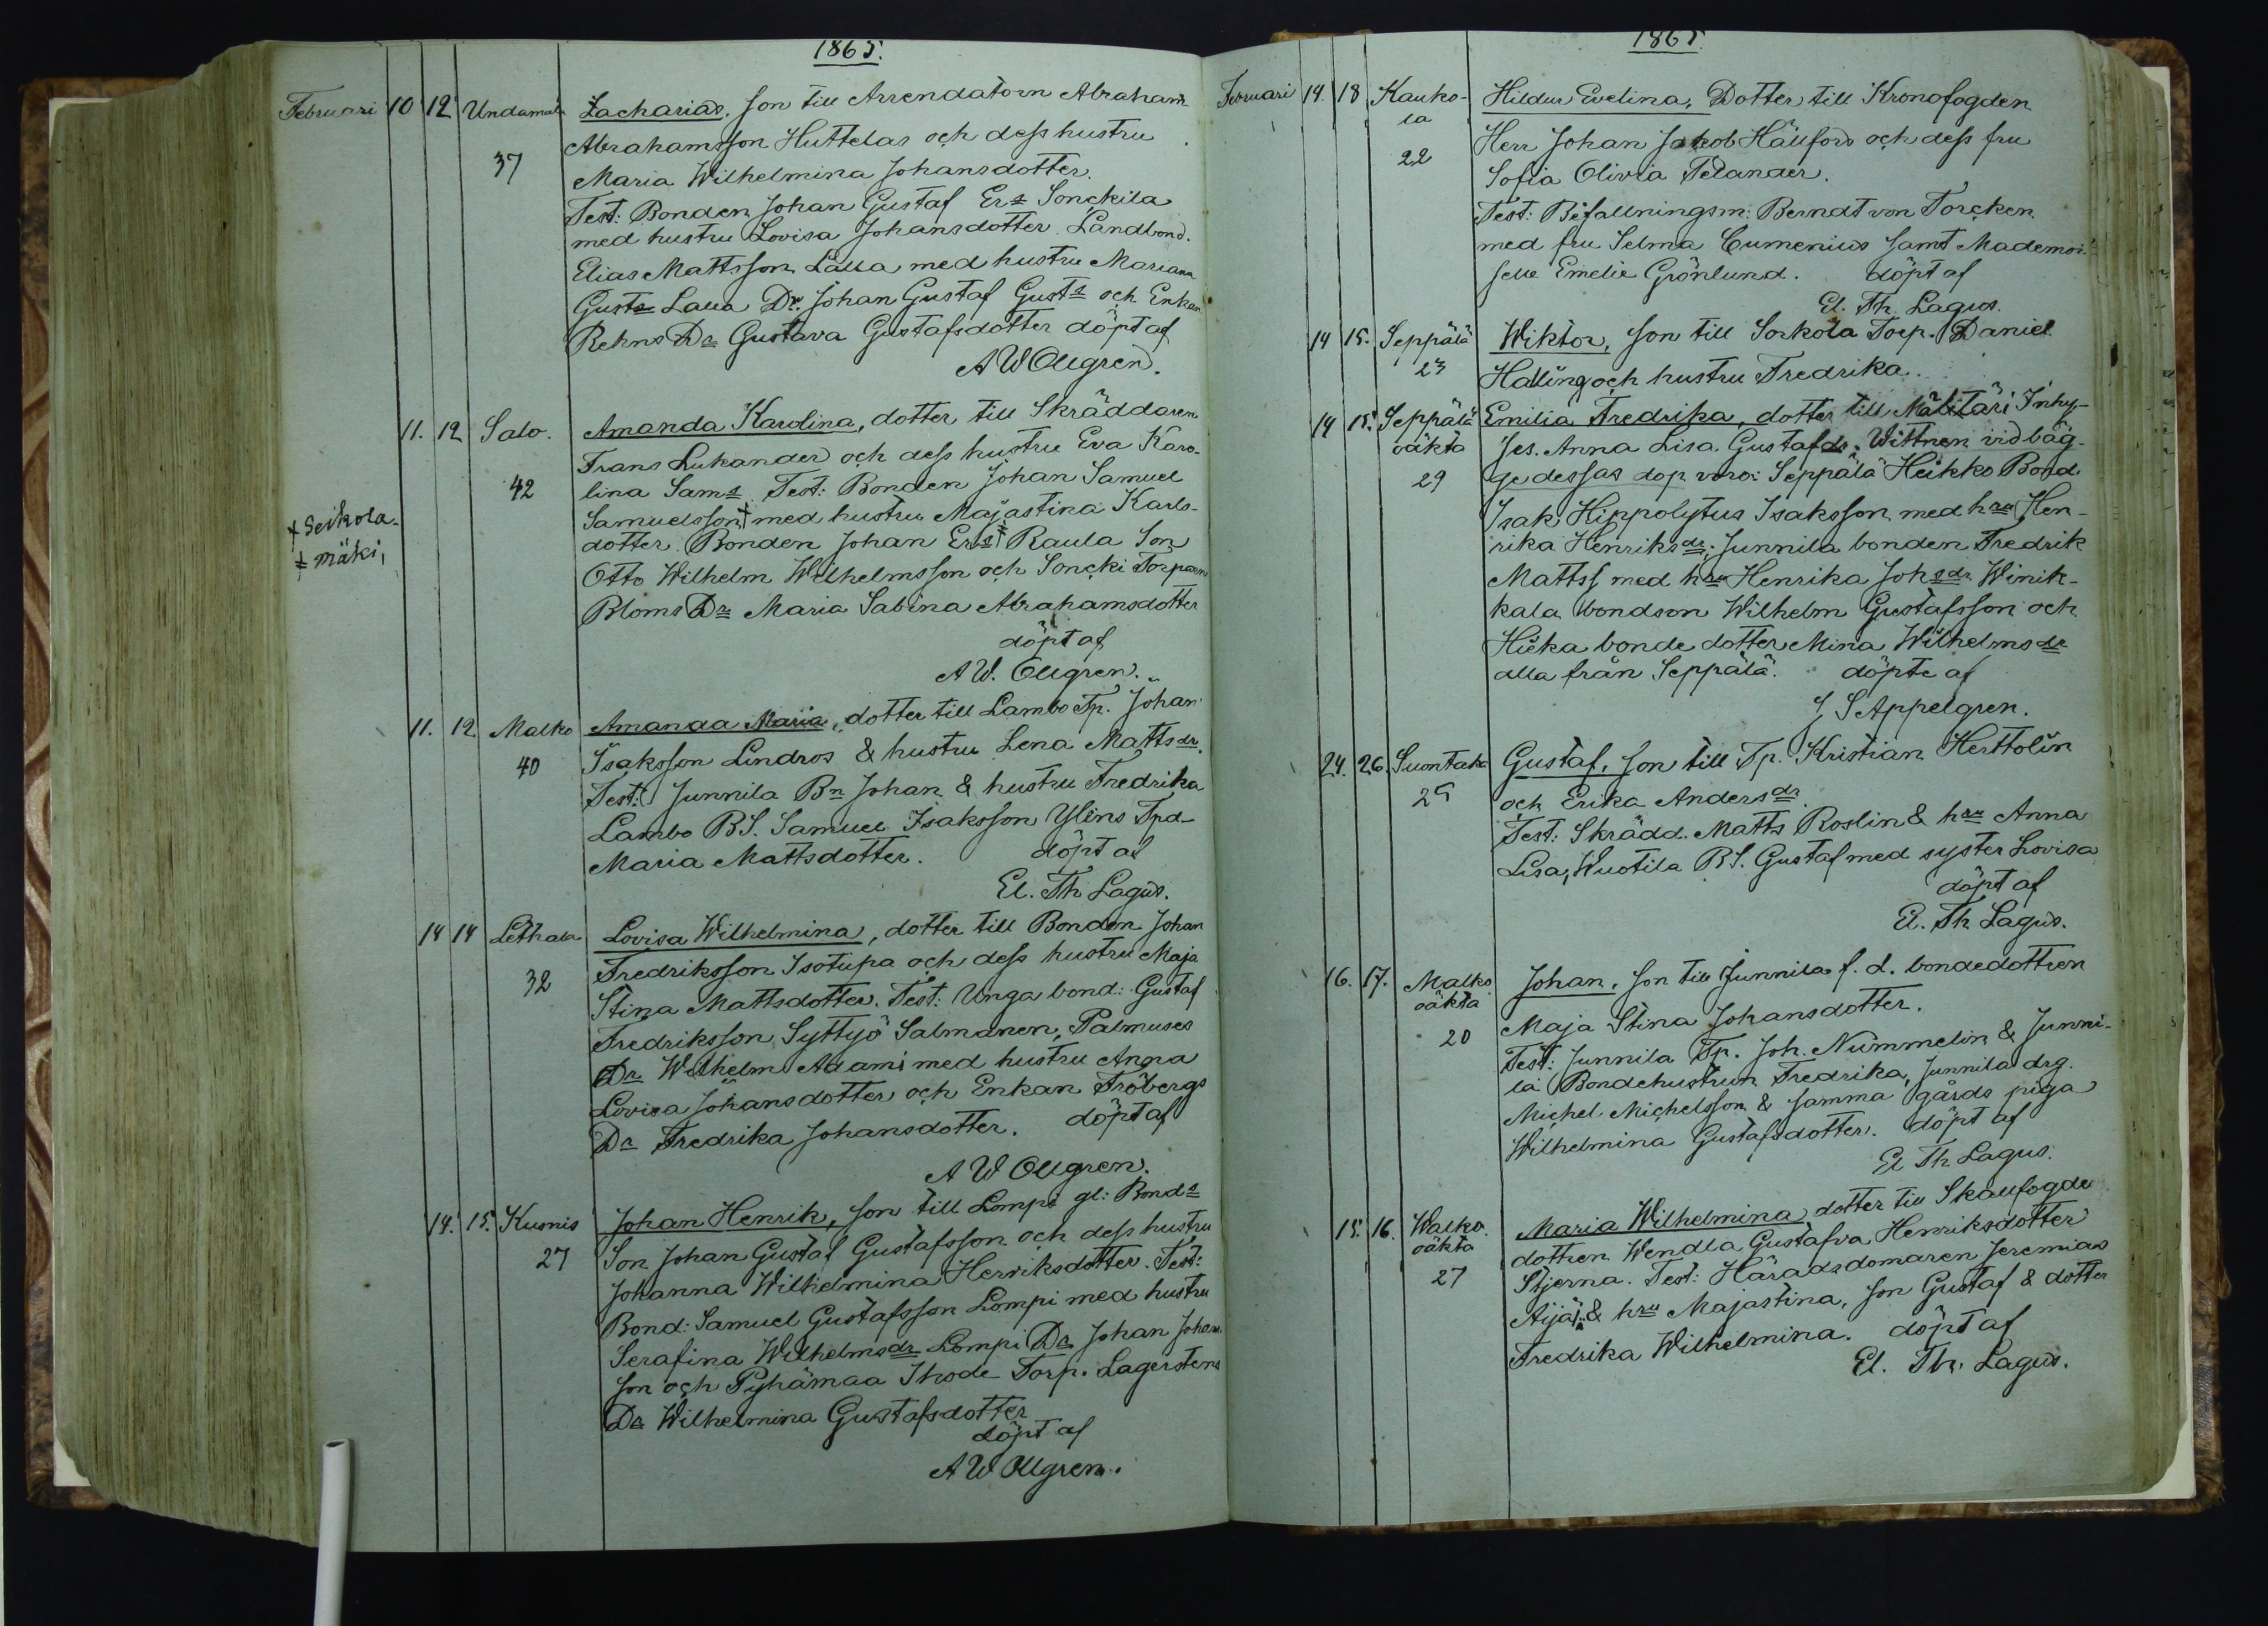 1865.
Februari 10 12 Undamala Zacharias, son till Arrendatorn Abraham
Abrahamsson Huttelas och dess hustru
37 Maria Wilhelmina Johansdotter.
Test: Bonden Johan Gustaf Ers Sonckila
med hustru Lovisa Johansdotter. Landbond.
Elias Mattsson Lalla med hustru Mariana
Gusts Lalla Dr. Johan Gustaf Gusts och Enkan
Rehns Dr Gustava Gustafsdotter döpt af
A W Ollgren.
11. 12 Salo. Amanda Karolina, dotter till Skräddaren
Frans Lukander och dess hustru Eva Karo-
42 lina Sams. Test: Bonden Johan Samuel
Samuelsson + med hustru Majastina Karls-
+ Seikola-
dotter. Bonden Johan Ers ‡ Raula Son
‡ mäki,
Otto Wilhelm Wilhelmsson och Soncki Torparen
Bloms Dr Maria Sabina Abrahamsdotter
döpt af
A W. Ollgren.
11. 12 Malko Amanda Maria, dotter till Lambo Tp. Johan
40 Isaksson Lindros & hustru Lena Mattsdr.
Test: Junnila Bn Johan & hustru Fredrika
Lambo B.S. Samuel Isaksson Ylins Tpd-
Maria Mattsdotter. döpt af
El. Th Lagus.
14 14 Lethala Lovisa Wilhelmina, dotter till Bonden Johan
32 Fredriksson Isotupa och dess hustru Maja
Stina Mattsdotter. Test: Unga bond: Gustaf
Fredriksson Syttyö Salmanen, Palmuses
Dr Wilhelm Adami med hustru Anna
Lovisa Johansdotter och Enkan Fröbergs
Dr Fredrika Johansdotter. döpt af
A W Ollgren.
14. 15. Kusnis Johan Henrik, son till Lompi gl: Bonds
27 Son Johan Gustaf Gustafsson och dess hustru
Johanna Wilhelmina Henriksdotter. Test:
Bond: Samuel Gustafsson Lompi med hustru
Serafina Wilhelmsdr Lompi Dr Johan Johans
son och Pyhämaa Ihode Torp. Lagerstens
Dr Wilhelmina Gustafsdotter
döpt af
A W Ollgren.
1865.
Februari 14. 18 Kauko- Hildur Evelina, Dotter till Kronofogden
la Herr Johan Jakob Hällfors och dess fru
22 Sofia Olivia Telander.
Test: Befallningsm: Berndt von Torcken
med fru Selma Cumenius samt Mademoi-
selle Emelie Grönlund. döpt af
El. Th. Lagus.
14 15. Seppälä Wiktor, son till Sorkola Torp. Daniel
23 Halling och hustru Fredrika.
14 15. Seppälä Emilia Fredrika, dotter till Militäri Inhy-
oäkta ses. Anna Lisa Gustafsdr. Wittnen vid båg-
29 ge dessas dop voro: Seppälä Heikko Bond
Isak Hippolytus Isaksson med hru Hen-
rika Henriksdr; Junnila bonden Fredrik
Mattss med hru Henrika Johsdr Winik-
kala bondson Wilhelm Gustafsson och
Hieka bonde dotter Mina Wilhelmsdr
alla från Seppälä. döpte af
S Appelgren.
24. 26. Suontaka Gustaf, son till Tp. Kristian Herttolin
29 och Erika Andersdr.
Test: Skrädd. Matts Roslin & hru Anna
Lisa, Wuotila B.S. Gustaf med syster Lovisa
döpt af
El. Th Lagus.
16. 17. Malko Johan, son till Junnila f. d. bondedottren
oäkta Maja Stina Johansdotter.
20 Test: Junnila Tp. Joh. Nummelin & Junni-
la Bondehustrun Fredrika, Junnila drg.
Michel Michelsson & samma gårds piga
Wilhelmina Gustafsdotter. döpt af
El Th Lagus.
15. 16. Walko. Maria Wilhelmina, dotter till Skallfogde
oäkta dottren Wendla Gustafva Henriksdotter
27 Stjerna. Test: Häradsdomaren Jeremias
Äijä, & hru Majastina, son Gustaf & dotter
Fredrika Wilhelmina. döpt af
El. Th. Lagus.